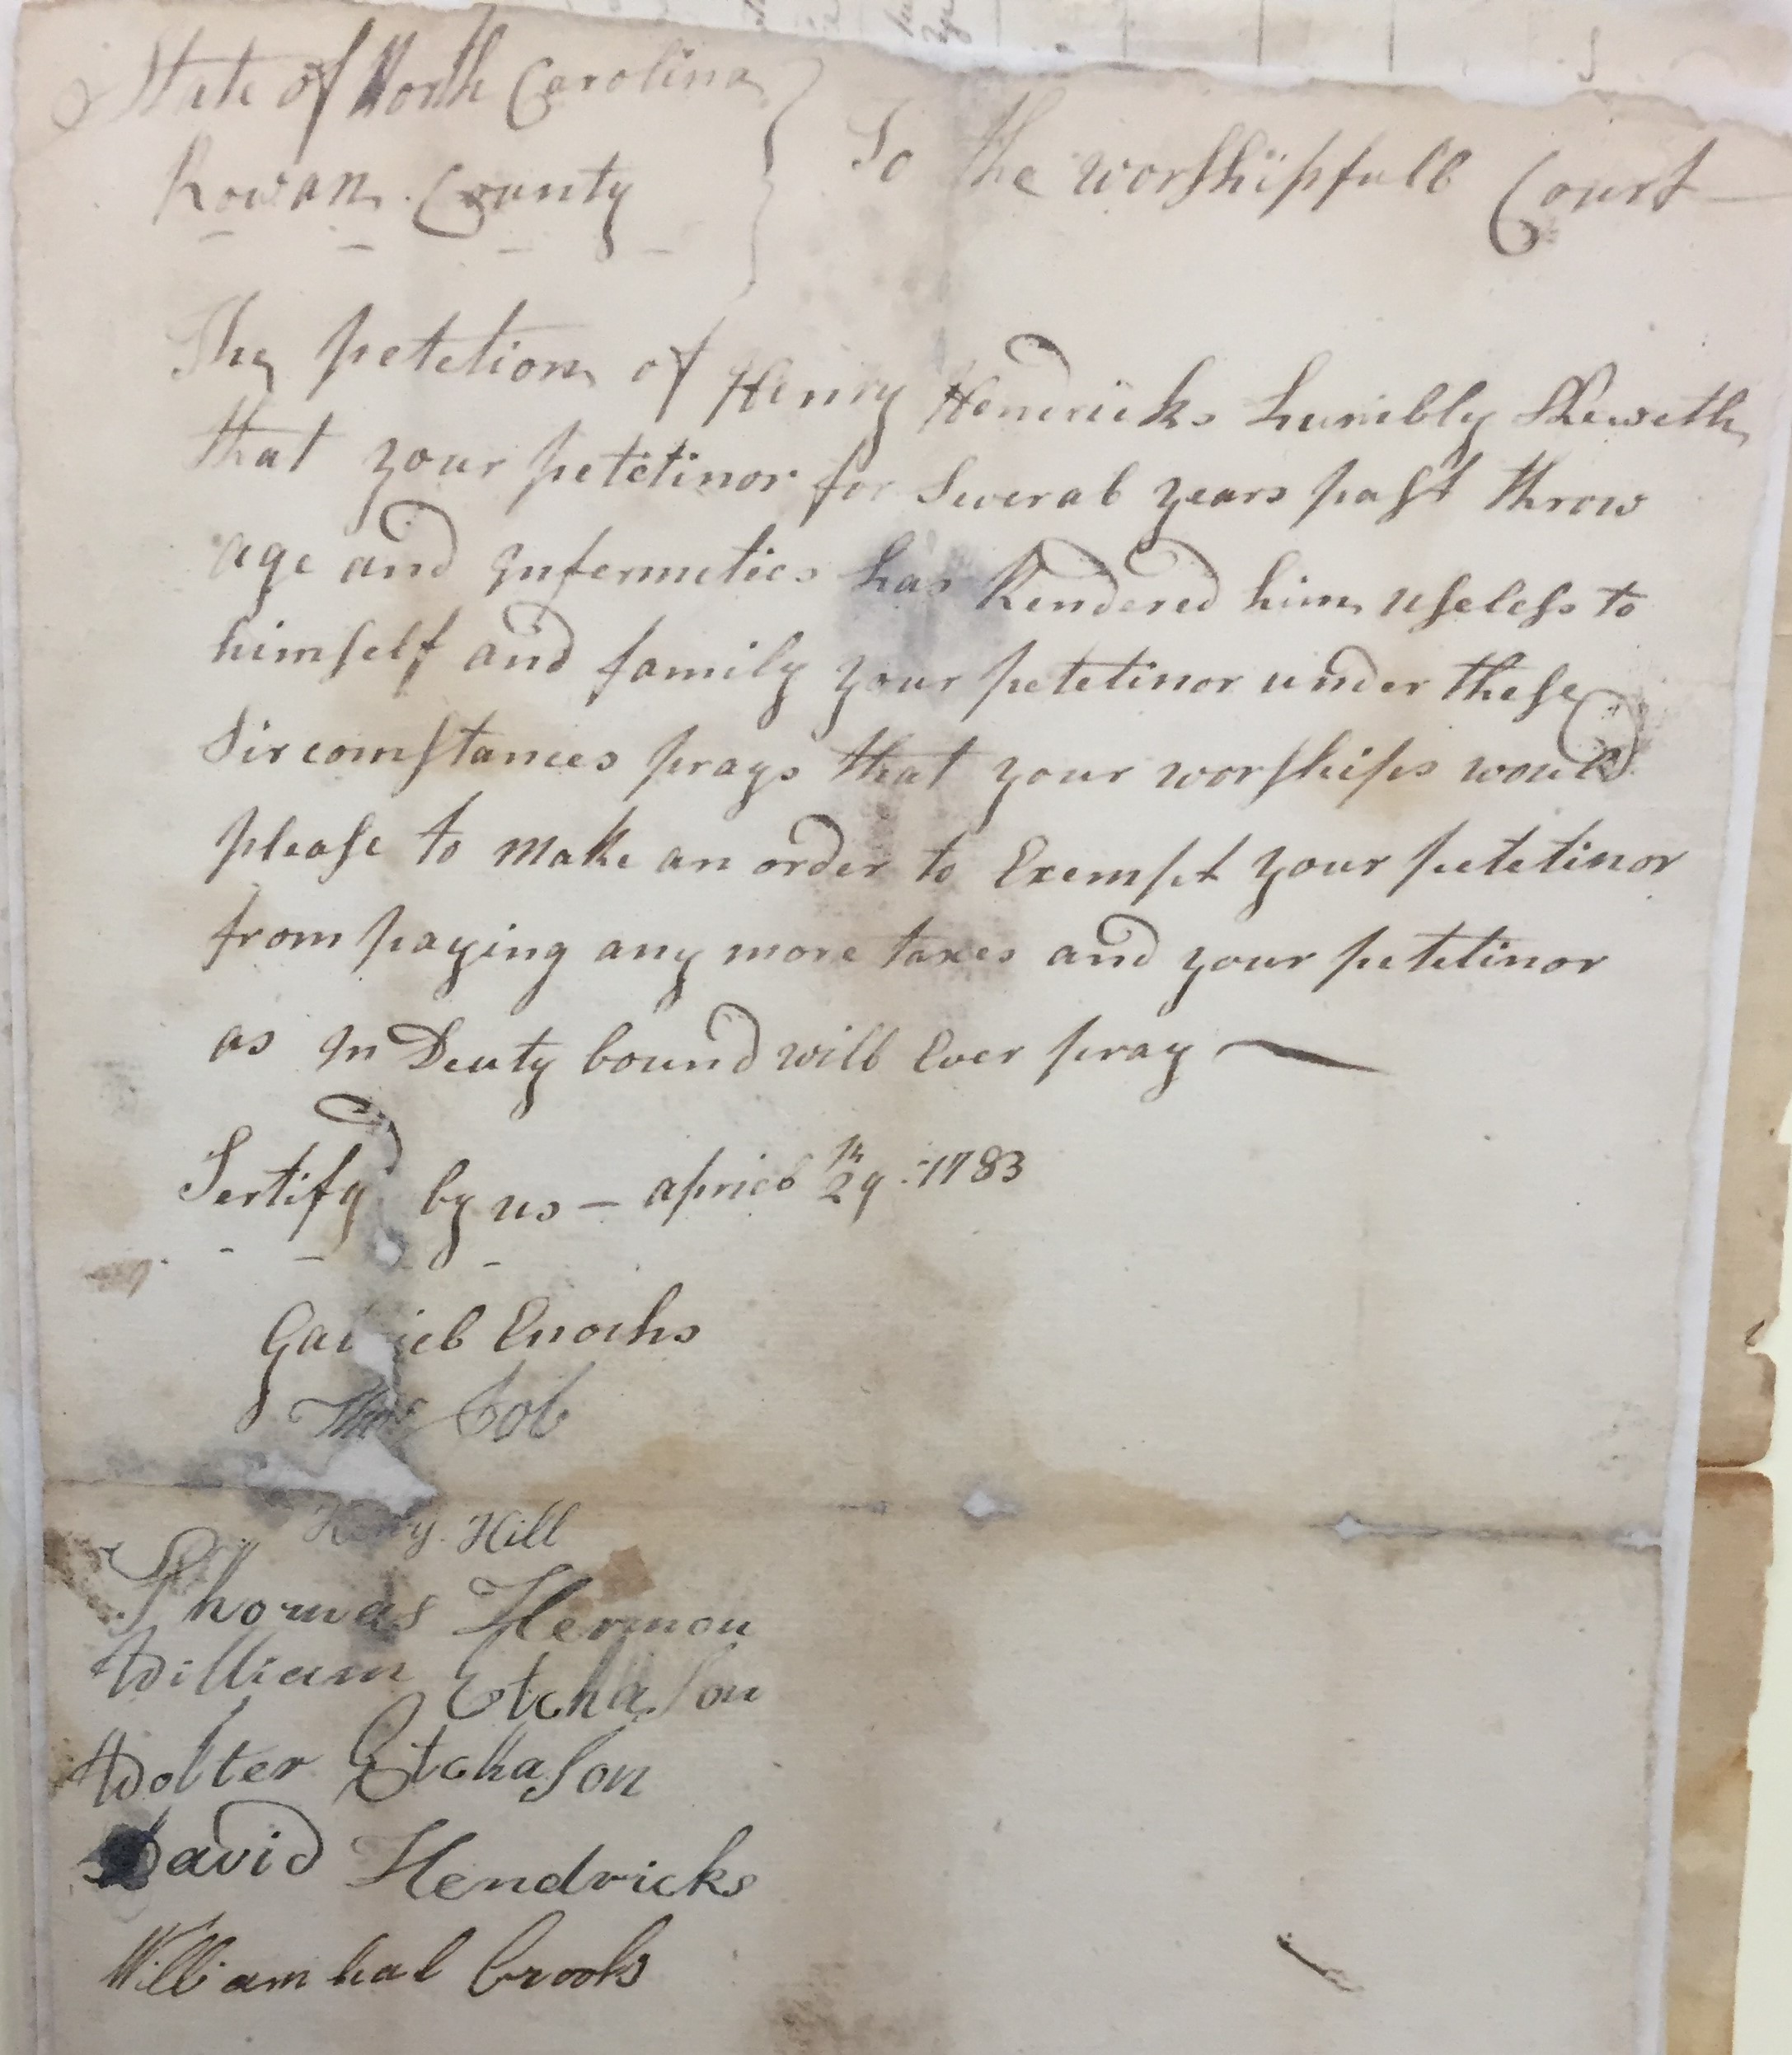 State of North Carolina
Rowan County
To the worshipfull Court
The petetion of Henry Hendricks humbly Sheweth
that your petetinor for Several years past throw
age and Infermeties has Rendered him useless to
himself and family your petetinor under these
Sircomstances prays that your worships would
please to make an order to Exempt your petetinor
from paying any more taxes and your petetinor
as In Deuty bound will Ever pray
Sertifyd by us — april 29th 1783
Gabriel Enochs
Thos Job
Henry Hill
Thomas Hermon
William Etchason
Wolter Etchason
David Hendricks
William hal brooks